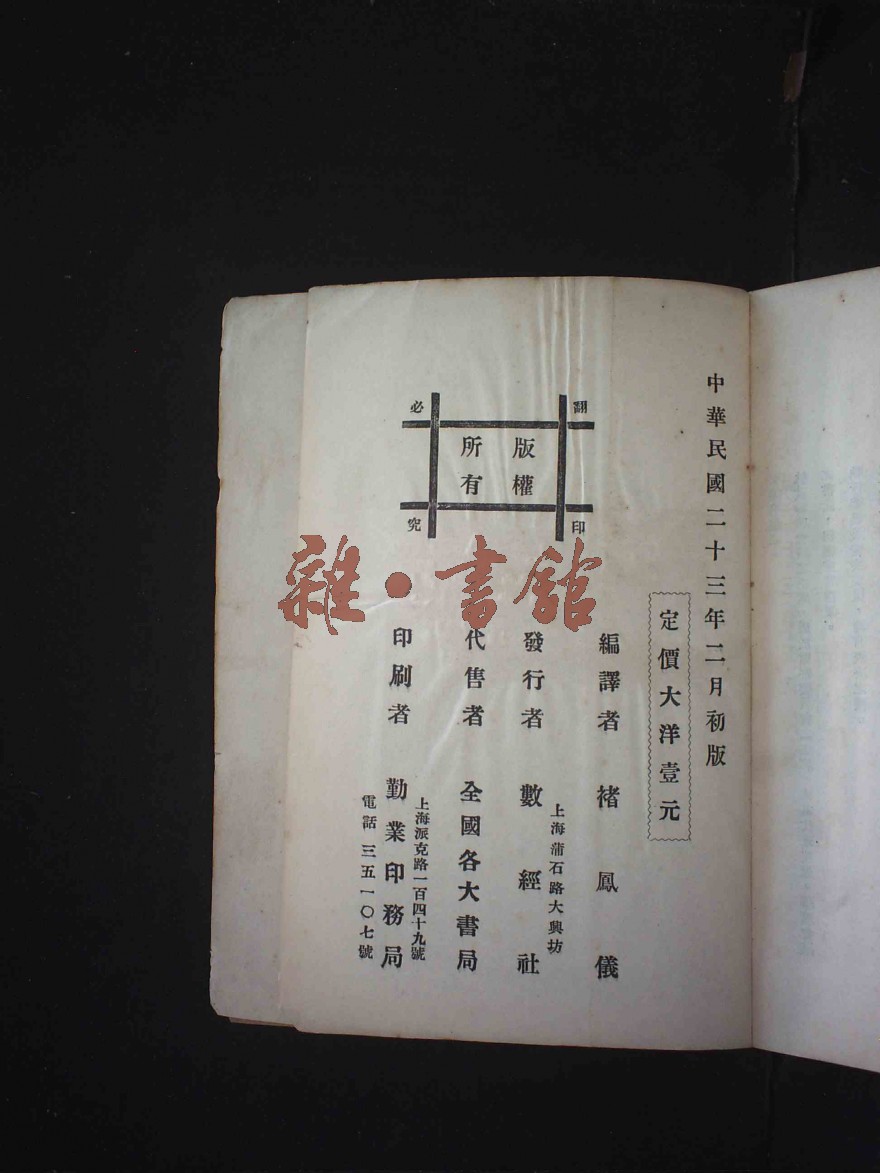 中華民國二十三年二月初版
定價大洋壹元
編譯者 褚鳳儀
發行者 數經社
上海蒲石路大興坊
代售者 全國各大書局
印刷者 勤業印務局
上海派克路一百四十九號
電話 三五一〇七號
版權所有
翻印必究
雜·書館